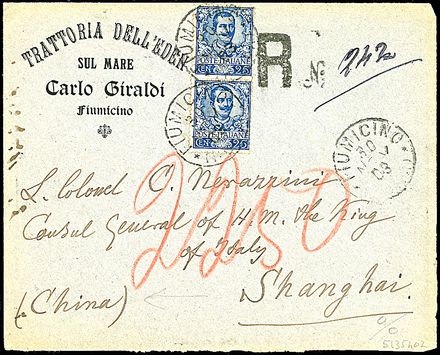 TRATTORIA DELL'EDEN
SUL MARE
Carlo Giraldi
Fiumicino
POSTE ITALIANE
CENT 25
POSTE ITALIANE
CENT 25
FIUMICINO
R
N
242
FIUMICINO
20
03
2250
L. Colonel C. Nerazzini
Consul General of H. M. the King
of Italy
Shanghai.
(China)
%
5135402